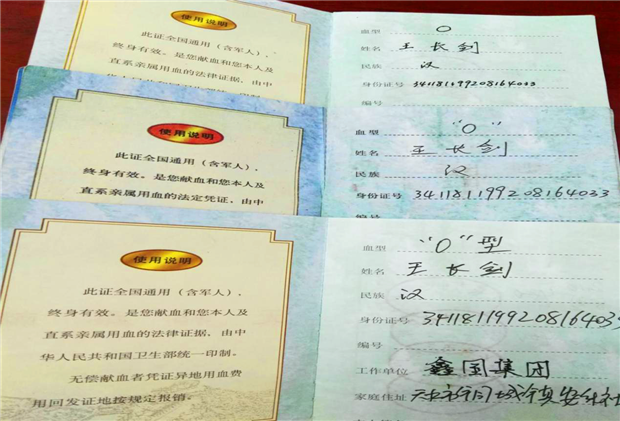 使用说明
此证全国通用（含军人），
终身有效。是您献血和您本人及
直系亲属用血的法律证据，由中
血型 O
姓名 王长剑
民族 汉
身份证号 341181199208164033
编号
使用说明
此证全国通用（含军人），
终身有效。是您献血和您本人及
直系亲属用血的法定凭证，由中
血型 "O"
姓名 王长剑
民族 汉
身份证号 341181199208164033
使用说明
此证全国通用（含军人），
终身有效。是您献血和您本人及
直系亲属用血的法律证据，由中
华人民共和国卫生部统一印制。
无偿献血者凭证异地用血费
用回发证地按规定报销。
血型 "O"型
姓名 王长剑
民族 汉
身份证号 341181199208164033
编号
工作单位 鑫国集团
家庭住址